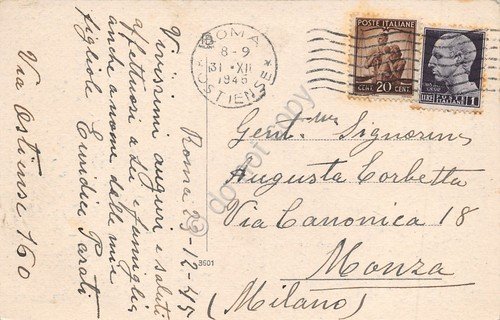 ROMA
OSTIENSE
8-9
31 XII
1945
POSTE ITALIANE
CENT. 20 CENT.
LIRE 1
POSTE ITALIANE
Roma 29-12-45
Vivissimi auguri e saluti
affettuosi a Lei e famiglia
anche a nome delle mie
figliole Parati
Via Ostiense 160
3601
Gent.ma Signorina
Augusta Corbetta
Via Canonica 18
Monza
(Milano)
do not copy